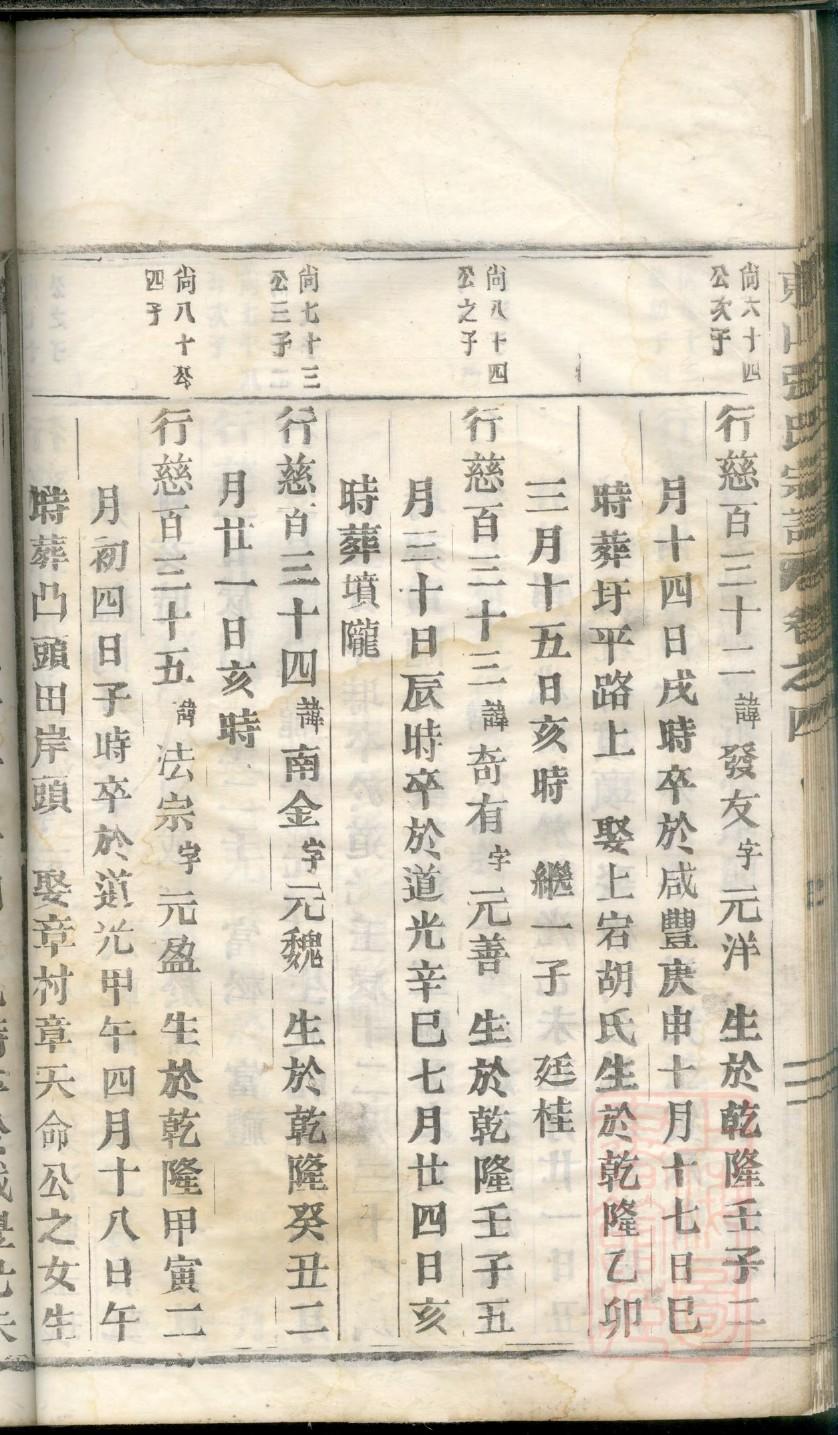 東山張氏宗譜 卷之四
尙六十四
公次子
行慈百三十二諱發友字元洋 生於乾隆壬子二
月十四日戌時卒於咸豐庚申十月十七日巳
時葬圩平路上 娶上宕胡氏生於乾隆乙卯
三月十五日亥時 繼一子 廷桂
尙八十四
公之子
行慈百三十三諱奇有字元善 生於乾隆壬子五
月三十日辰時卒於道光辛巳七月廿四日亥
時葬墳隴
尙七十三
公三子
行慈百三十四諱南金字元魏 生於乾隆癸丑二
月廿一日亥時
尙八十公
四子
行慈百三十五諱法宗字元盈 生於乾隆甲寅二
月初四日子時卒於道光甲午四月十八日午
時葬凸頭田岸頭 娶章村章天命公之女生